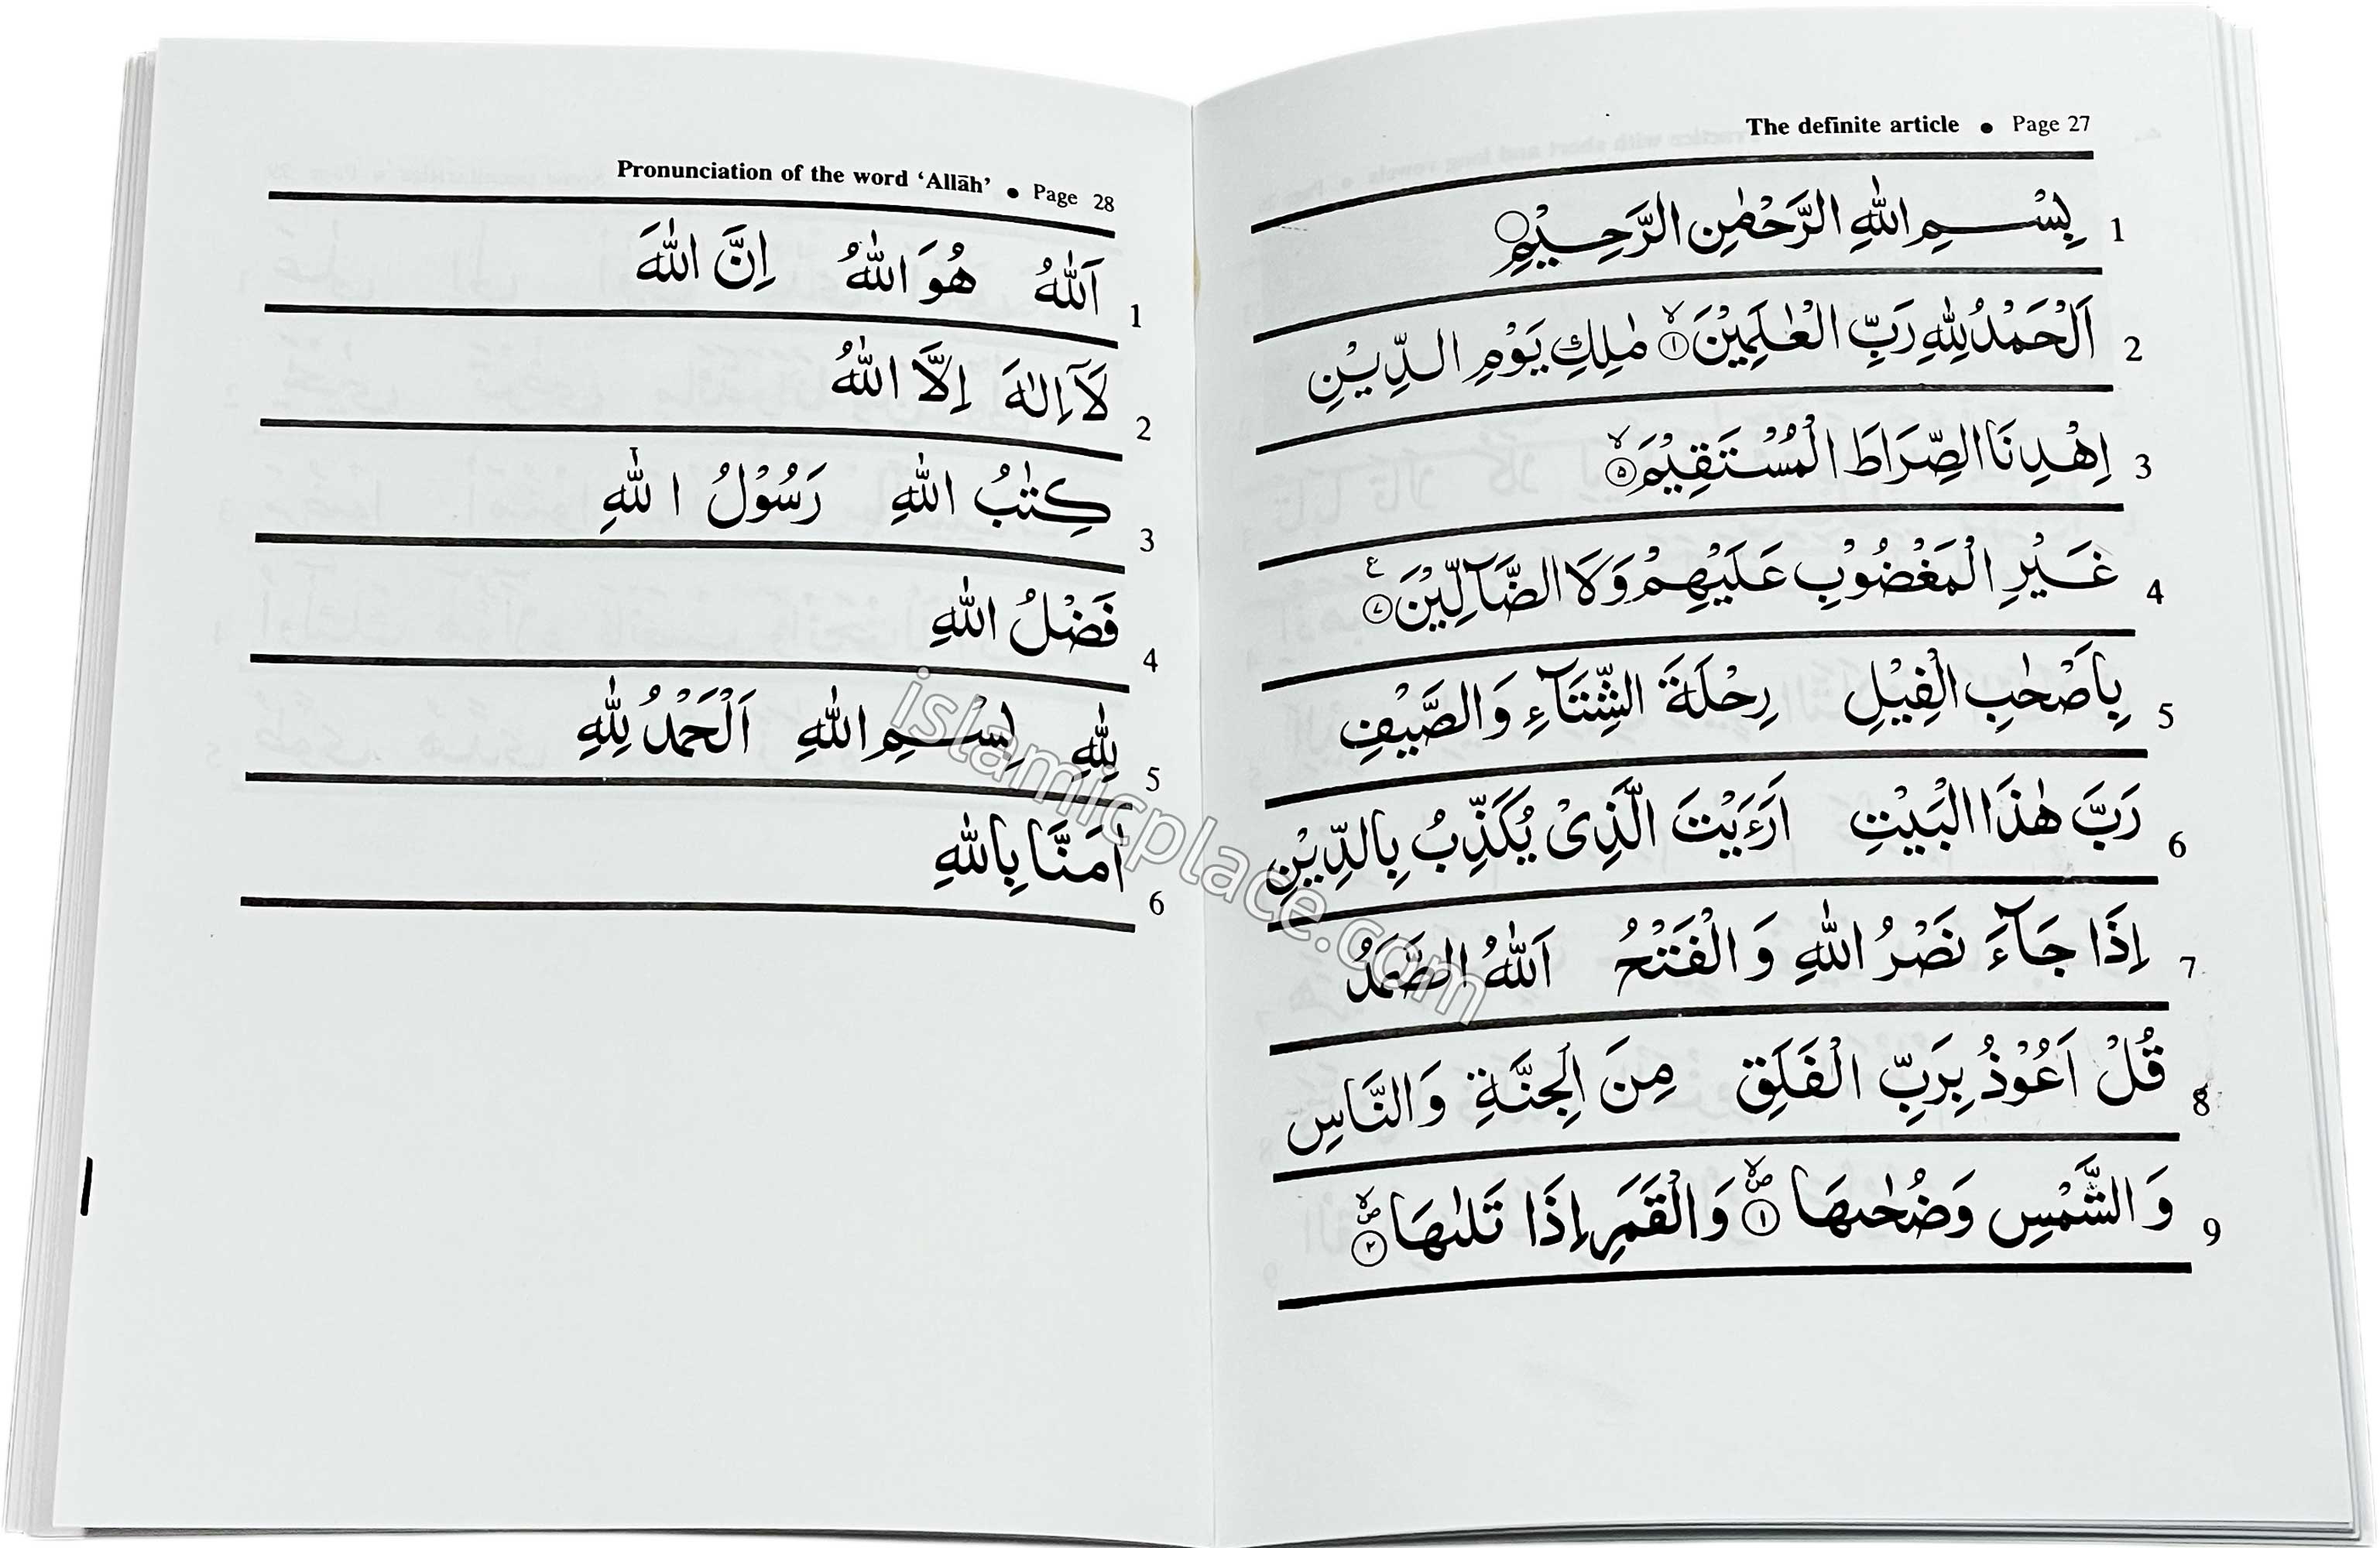 The definite article • Page 27
1 بِسْـــمِ اللّٰهِ الرَّحْمٰنِ الرَّحِـــيْمِ ○
2 اَلْحَمْدُ لِلّٰهِ رَبِّ الْعٰلَمِيْنَ ۙ‏ ١ مٰلِكِ يَوْمِ الدِّيْنِ
3 اِهْدِنَا الصِّرَاطَ الْمُسْتَقِيْمَ ۙ‏ ٥
4 غَيْرِ الْمَغْضُوْبِ عَلَيْهِمْ وَلَا الضَّآلِّيْنَ ع ٧
5 بِاَصْحٰبِ الْفِيْلِ رِحْلَةَ الشِّتَآءِ وَالصَّيْفِ
6 رَبَّ هٰذَا الْبَيْتِ اَرَءَيْتَ الَّذِىْ يُكَذِّبُ بِالدِّيْنِ
7 اِذَا جَآءَ نَصْرُ اللّٰهِ وَ الْفَتْحُ اَللّٰهُ الصَّمَدُ
8 قُلْ اَعُوْذُ بِرَبِّ الْفَلَقِ مِنَ الْجِنَّةِ وَ النَّاسِ
9 وَ الشَّمْسِ وَضُحٰىهَا ۙ ص ١ وَالْقَمَرِ اِذَا تَلٰىهَا ۙ ص ٢
Pronunciation of the word ‘Allāh’ • Page 28
1 اَللّٰهُ هُوَ اللّٰهُ اِنَّ اللّٰهَ
2 لَآ اِلٰهَ اِلَّا اللّٰهُ
3 كِتٰبُ اللّٰهِ رَسُوْلُ اللّٰهِ
4 فَضْلُ اللّٰهِ
5 لِلّٰهِ بِسْـــمِ اللّٰهِ اَلْحَمْدُ لِلّٰهِ
6 اٰمَنَّا بِاللّٰهِ
islamicplace.com